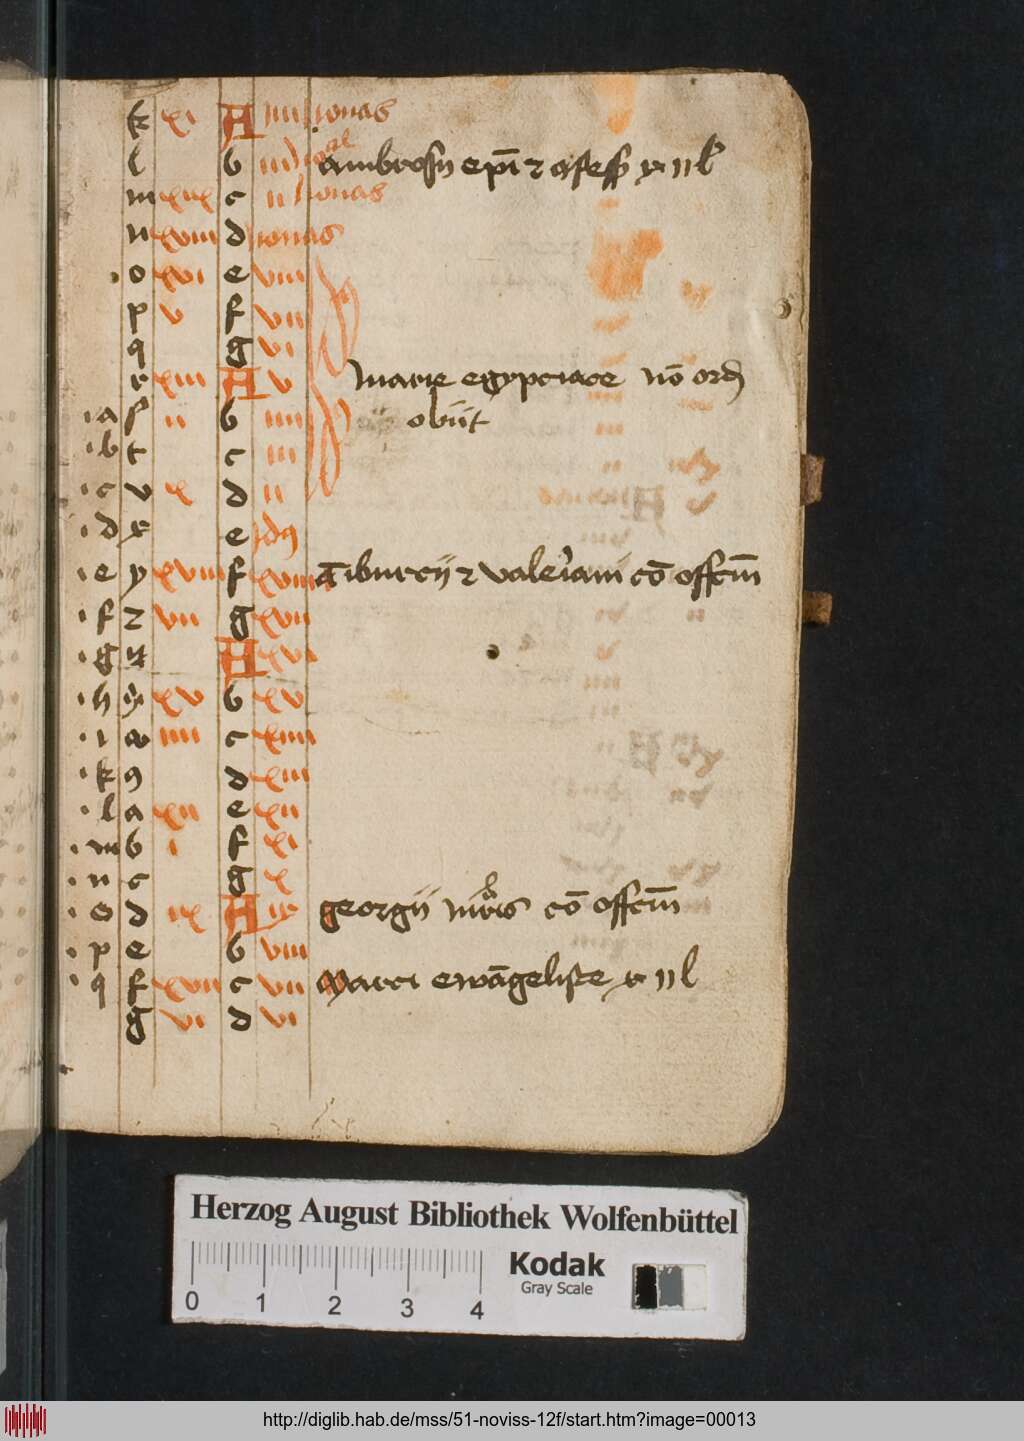 k xi A iiii nonas
l b iii Ambrosij epi et 9fess
m xix c ii nonas
n xviii d nonas
o xvi e viii
p v f vii
q g vi
r xiii A v Marie egypciace no ord
·a s ii b iiii obiit
·b t c iii
·c v x d ii
·d x e Id9
·e y xviii f xviii Tiburcij et valeriani co offm
·f z vii g xvii
·g A xvi
·h xv b xv
·i iiii c xiiii
·k 9 d xiii
·l a xii e xii
·m b i f xi
·n c g x
·o d ix A ix georgij mris co offm
·p e b viii
·q f xvii c vii Marci ewāgeliste x ii l
g vi d vi
Herzog August Bibliothek Wolfenbüttel
0 1 2 3 4
Kodak
Gray Scale
http://diglib.hab.de/mss/51-noviss-12f/start.htm?image=00013